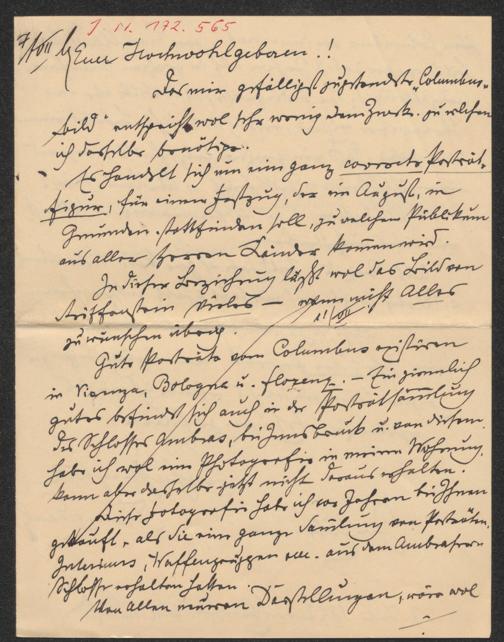 J. N. 172.565
7/VII
Euer Hochwohlgeboren!!
Das mir gefälligst zugesandte „Columbus-
bild“ entspricht wol sehr wenig dem Zweck, zu welchem
ich dasselbe benötige.
Es handelt sich um eine ganz correcte Porträt-
figur, für einen Festzug, der im August, in
Gmunden stattfinden soll, zu welchem Publikum
aus aller Herren Länder kommen wird.
In dieser Beziehung läßt wol das Bild von
Vieles — wenn nicht Alles
zu wünschen übrig.
Gute Porträts vom Columbus existiren
in Bologna u. Florenz. — Ein ziemlich
gutes befindet sich auch in der Porträtsammlung
des Schlosses Ambras, bei Innsbruck u. von diesem
habe ich wol eine Photografie in meiner Wohnung,
kann aber dasselbe jetzt nicht daraus erhalten.
Diese Fotografie habe ich vor Jahren bei Ihnen
gekauft, als Sie eine ganze Samlung von Porträten,
Interieurs, Waffengruppen etc. aus dem Ambraser
Schlosse erhalten hatten.
Von Allen neueren Darstellungen, wäre wol